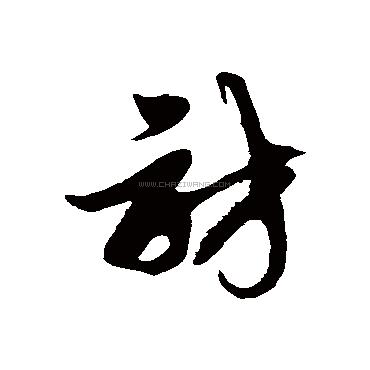 訪
WWW.CHAZIWANG.COM